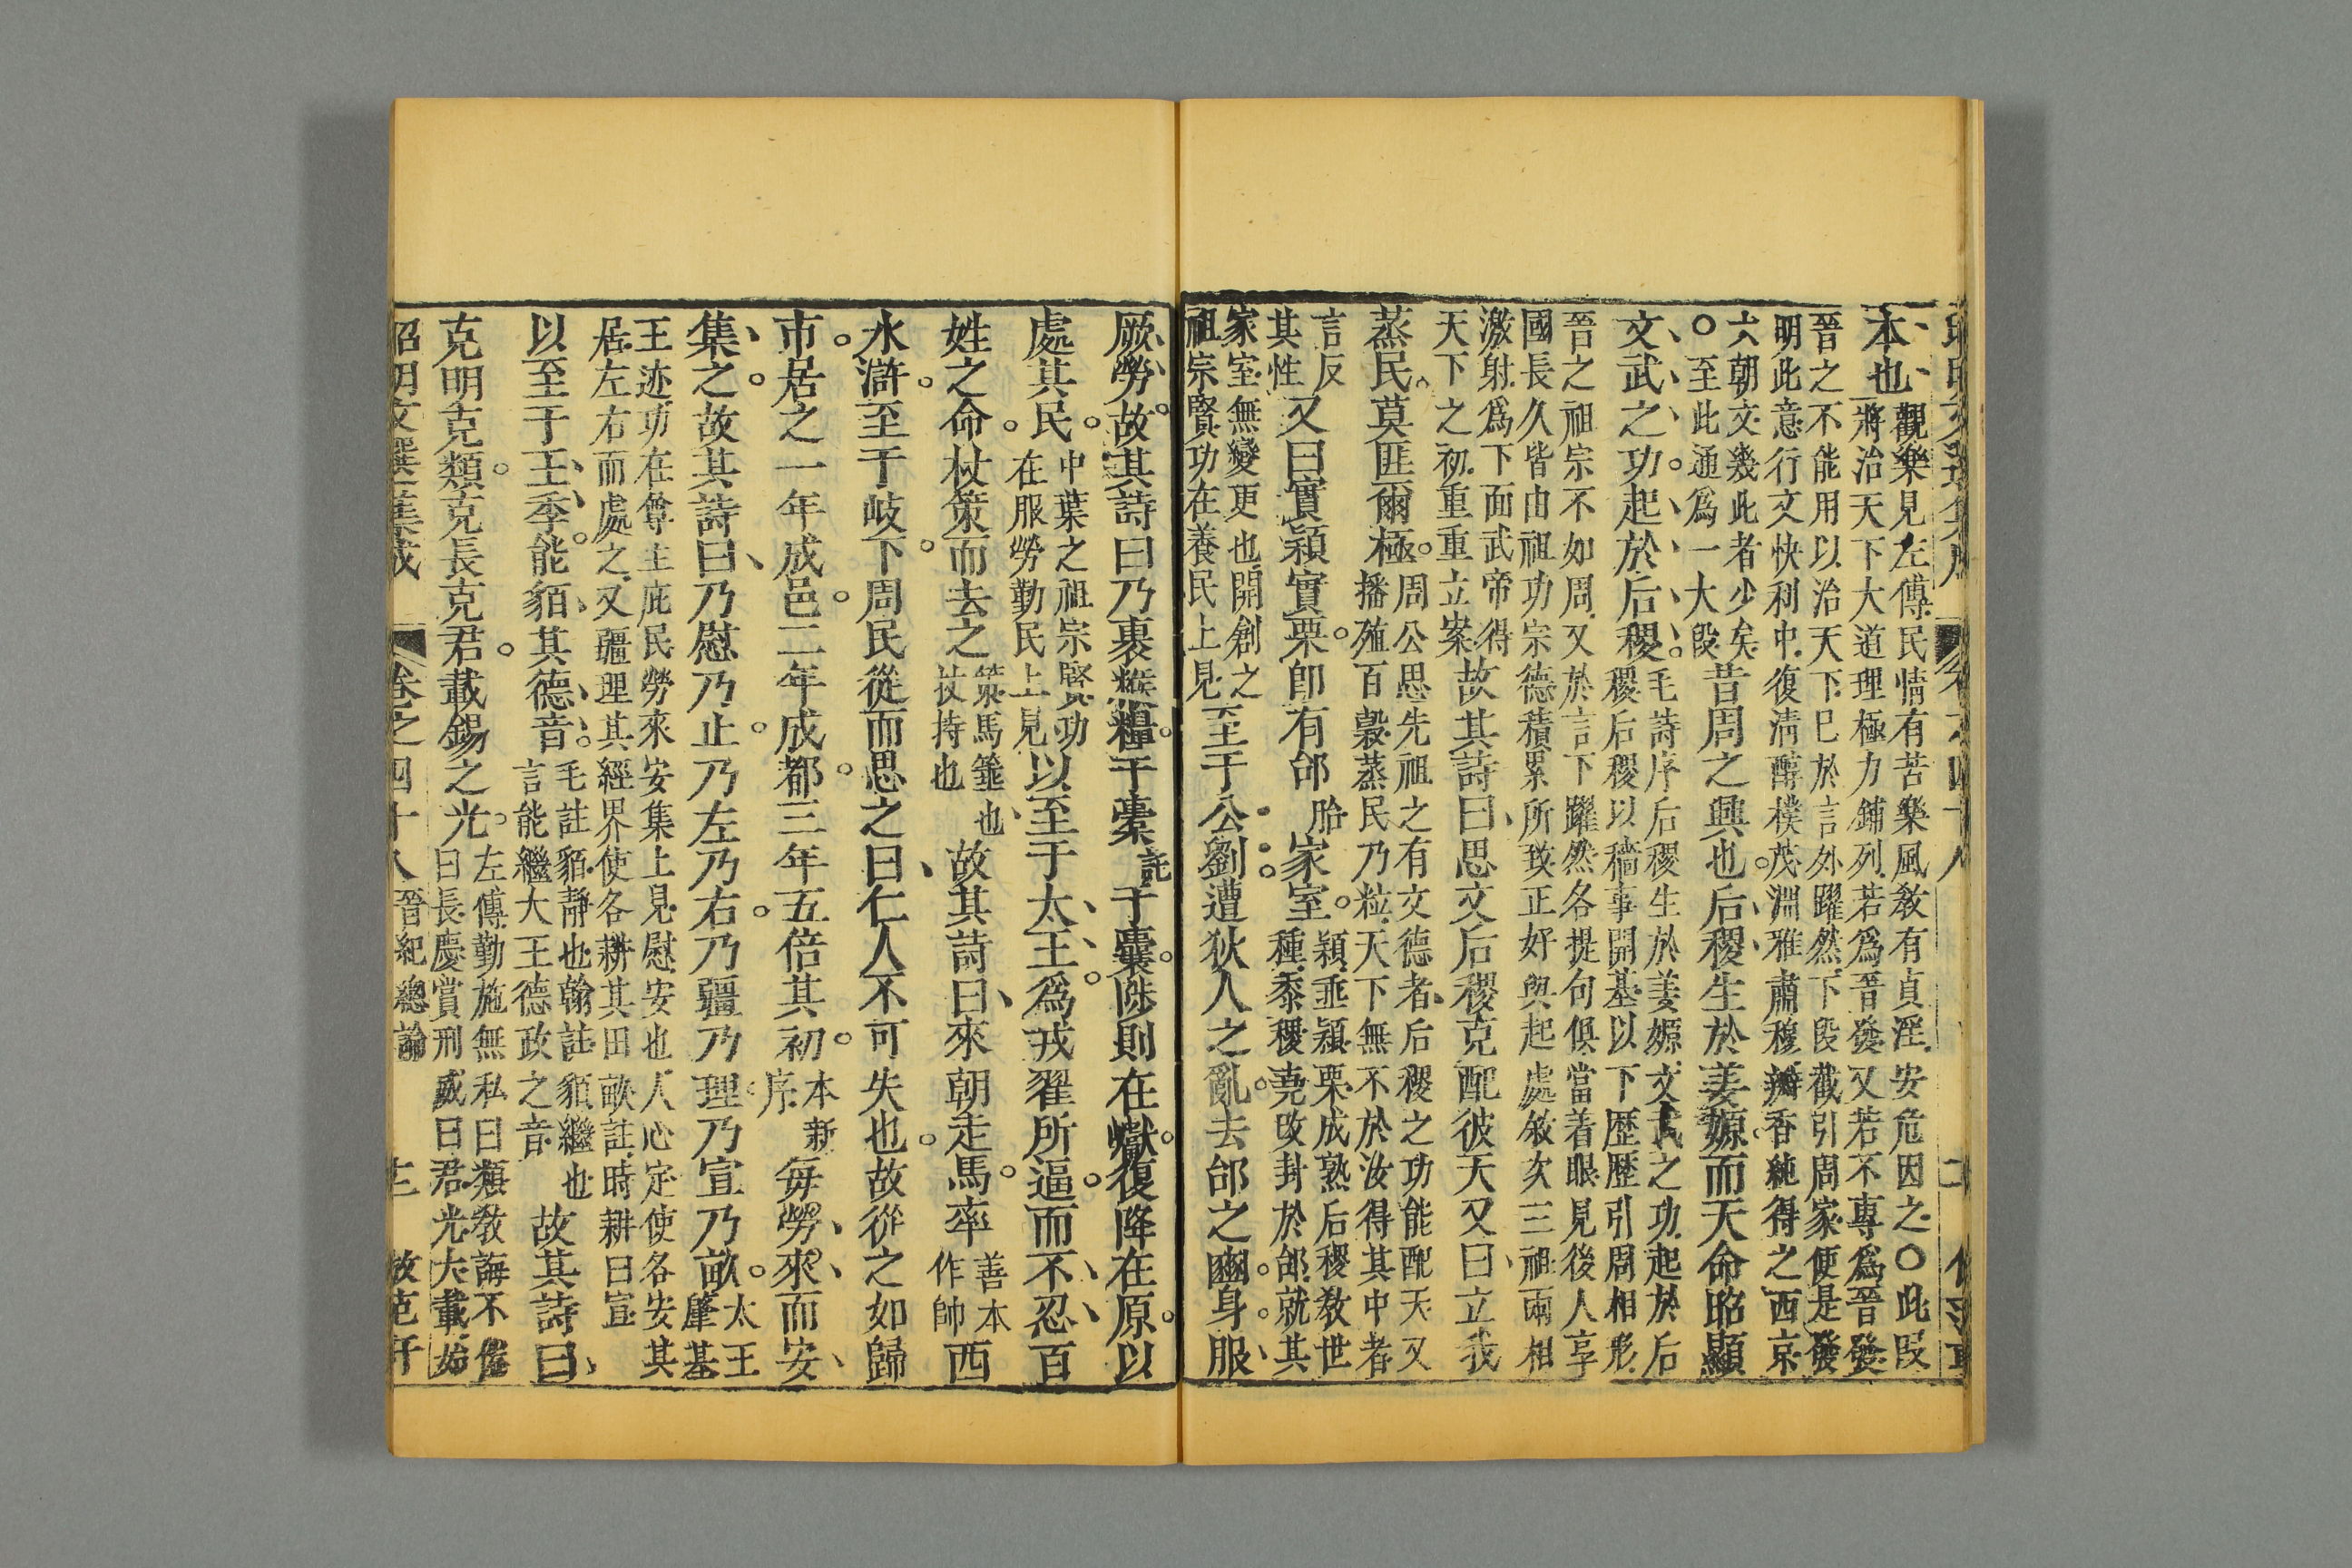 本也觀樂見左傳民情有苦樂風敎有貞淫安危因之○此段
將治天下大道理極力鋪列若為晉發又若不專為晉發
晉之不能用以治天下巳於言外躍然下段截引周家便是發
明此意行文快利中復淸醇樸茂淵雅肅穆瓣香純得之西京
六朝文幾此者少矣
○至此通為一大段昔周之興也后稷生於姜嫄而天命昭顯
文武之功起於后稷毛詩序后稷生於姜嫄文武之功起於后
稷后稷以穡事開基以下歷歷引周相形
晉之祖宗不如周又於言下躍然各提句俱當着眼見後人享
國長久皆由祖功宗德積累所致正好與起處敘次三祖兩相
激射為下面武帝得
天下之初重重立案故其詩曰思文后稷克配彼天又曰立我
蒸民莫匪爾極周公思先祖之有文德者后稷之功能配天又
播殖百穀蒸民乃粒天下無不於汝得其中者
言反
其性又曰實穎實栗卽有邰胎家室穎垂穎栗成熟后稷敎世
種黍稷堯改封於邰就其
家室無變更也開創之
祖宗賢功在養民上見至于公劉遭狄人之亂去邰之豳身服
厥勞故其詩曰乃裹餱糧于橐託于囊陟則在巘復降在原以
處其民中葉之祖宗賢功
在服勞勤民上見以至于太王為戎翟所逼而不忍百
姓之命杖策而去之策馬箠也
杖持也故其詩曰來朝走馬率善本
作帥西
水滸至于岐下周民從而思之曰仁人不可失也故從之如歸
市居之一年成邑二年成都三年五倍其初本新
序每勞來而安
集之故其詩曰乃慰乃止乃左乃右乃疆乃理乃宣乃畝太王
肇基
王迹功在尊主庇民勞來安集上見慰安也人心定使各安其
居左右而處之又疆理其經界使各耕其田畝註時耕曰宣
以至于王季能貊其德音毛註貊靜也翰註貊繼也
言能繼大王德政之音故其詩曰
克明克類克長克君載錫之光左傳勤施無私曰類敎誨不倦
曰長慶賞刑威曰君光大載始
昭明文選集成 卷之四十八 晉紀總論 敬范軒